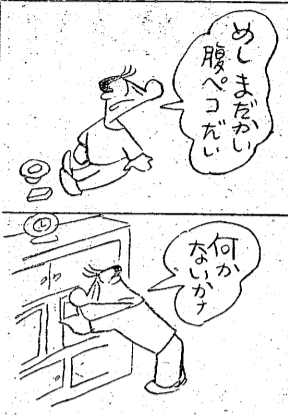 めしまだかい
腹ペコだい
何か
ないかナ